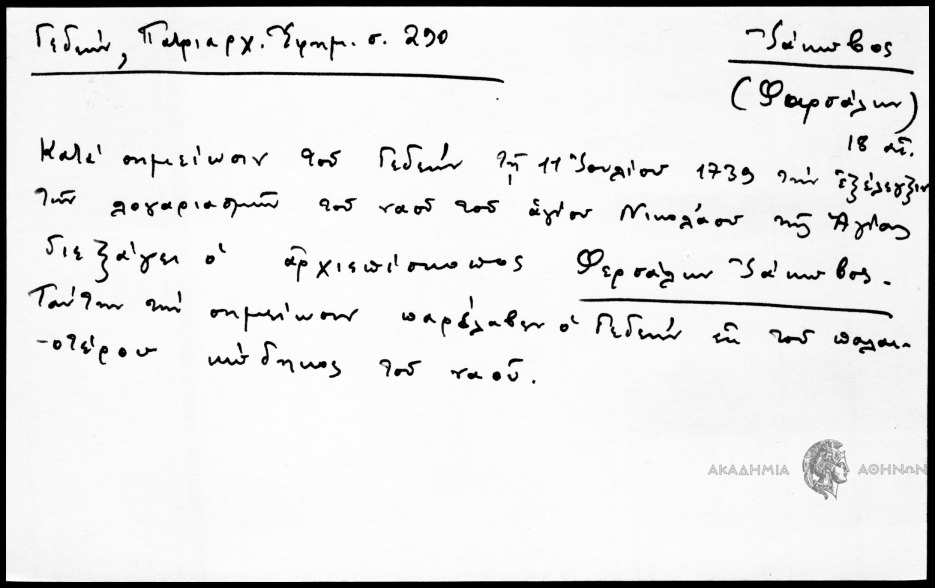 Γεδεών, Πατριαρχ. Ἐφημ. σ. 290
Ἰάκωβος
(Φαρσάλων)
18 αἰ.
Κατά σημείωσιν τοῦ Γεδεών τῇ 11 Ἰουλίου 1739 τήν ἐξέλεγξιν
τῶν λογαριασμῶν τοῦ ναοῦ τοῦ ἁγίου Νικολάου τῆς Ἁγίας
διεξάγει ὁ ἀρχιεπίσκοπος Φερσάλων Ἰάκωβος.
Ταύτην τήν σημείωσιν παρέλαβεν ὁ Γεδεών ἐκ τοῦ παλαι-
-οτέρου κώδηκος τοῦ ναοῦ.
ΑΚΑΔΗΜΙΑ ΑΘΗΝΩΝ